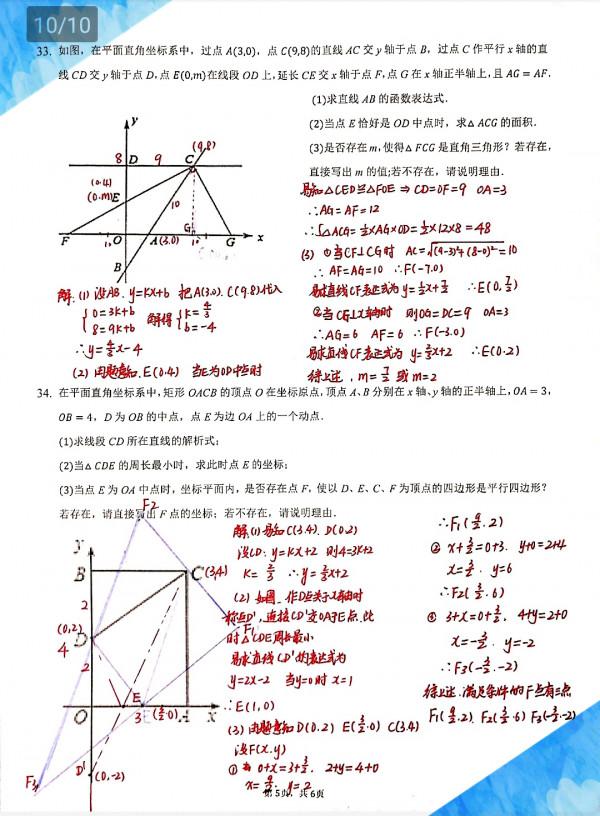 10/10
33. 如图，在平面直角坐标系中，过点 A(3,0)，点 C(9,8)的直线 AC 交 y 轴于点 B，过点 C 作平行 x 轴的直
线 CD 交 y 轴于点 D，点 E(0,m)在线段 OD 上，延长 CE 交 x 轴于点 F，点 G 在 x 轴正半轴上，且 AG = AF.
(1)求直线 AB 的函数表达式.
(2)当点 E 恰好是 OD 中点时，求△ ACG 的面积.
(3)是否存在 m，使得△ FCG 是直角三角形？若存在，
直接写出 m 的值;若不存在，请说明理由.
y
8 D 9 C (9,8)
(0.4)
(0.m) E
10
F 1. O A (3.0) G 1. G x
B
易知△CED≌△FOE ⇒ CD=OF=9 OA=3
∴AG=AF=12
∴S△ACG=½×AG×OD=½×12×8=48
(3) ①当CF⊥CG时 AC=√(9-3)²+(8-0)²=10
∴AF=AG=10 ∴F(-7.0)
易求直线CF表达式为 y=½x+7/2 ∴E(0,7/2)
②当CG⊥x轴时 则OG=DC=9 OA=3
∴AG=6 AF=6 ∴F(-3.0)
易求直线CF表达式为 y=⅔x+2 ∴E(0.2)
综上述，m=7/2 或 m=2
解.(1)设AB. y=kx+b 把A(3.0). C(9.8)代入
{0=3k+b 8=9k+b 解得 {k=4/3 b=-4
∴y=4/3x-4
(2) 由题意知.E(0.4) 当E为OD中点时
34. 在平面直角坐标系中，矩形 OACB 的顶点 O 在坐标原点，顶点 A、B 分别在 x 轴、y 轴的正半轴上，OA = 3，
OB = 4，D 为 OB 的中点，点 E 为边 OA 上的一个动点.
(1)求线段 CD 所在直线的解析式;
(2)当△ CDE 的周长最小时，求此时点 E 的坐标;
(3)当点 E 为 OA 中点时，坐标平面内，是否存在点 F，使以 D、E、C、F 为顶点的四边形是平行四边形？
若存在，请直接写出 F 点的坐标；若不存在，请说明理由.
F2
y
B C(3,4)
2
(0,2) D
4
2
F1
E
O 3 E (3/2.0) A x
D' (0,-2)
F3
解.(1)易知C(3.4). D(0.2)
设CD: y=kx+2 则4=3k+2
k=2/3 ∴y=⅔x+2
(2) 如图. 作D点关于x轴对
称点D'，连接CD'交OA于E点.此
时△CDE周长最小
易求直线CD'的表达式为
y=2x-2 当y=0时 x=1
∴E(1,0)
(3) 由题意知D(0.2) E(3/2.0) C(3.4)
设F(x.y)
① 0+x=3+3/2. 2+y=4+0
x=9/2 y=2
∴F₁(9/2.2)
② x+3/2=0+3. y+0=2+4
x=3/2. y=6
∴F₂(3/2.6)
3+x=0+3/2. 4+y=2+0
x=-3/2. y=-2
∴F₃(-3/2.-2)
综上述.满足条件的F点有三点
F₁(9/2.2). F₂(3/2.6) F₃(-3/2.-2)
第 5页，共 6页